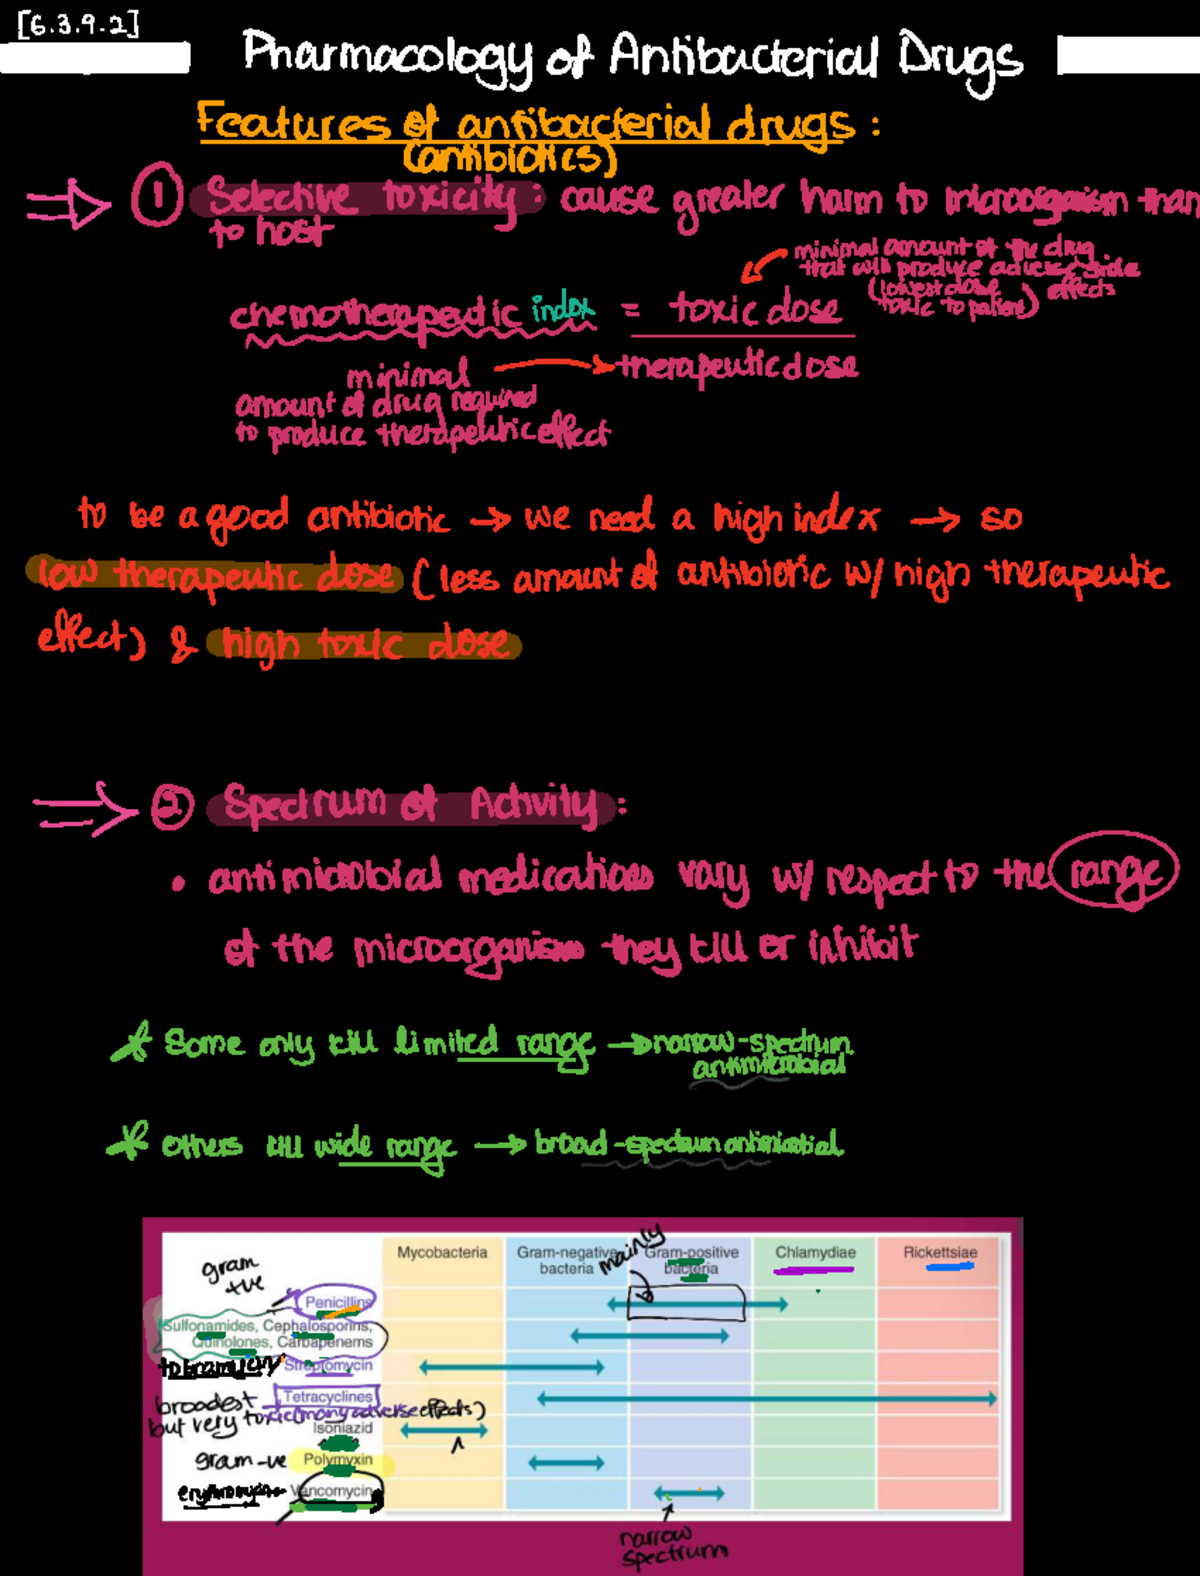 [6.3.9.2]
Pharmacology of Antibacterial Drugs
Features of antibacterial drugs:
(antibiotics)
1 Selective toxicity: cause greater harm to microorganism than
to host
minimal amount of the drug
that will produce adverse side
effects
(lowest dose
toxic to patient)
chemotherapeutic index = toxic dose
therapeutic dose
minimal
amount of drug required
to produce therapeutic effect
to be a good antibiotic → we need a high index → so
low therapeutic dose (less amount of antibiotic w/ high therapeutic
effect) & high toxic dose
2 Spectrum of Activity:
• antimicrobial medications vary w/ respect to the range
of the microorganism they kill or inhibit
* Some only kill limited range → narrow-spectrum
antimicrobial
* others kill wide range → broad-spectrum antimicrobial
Mycobacteria
Gram-negative
bacteria
mainly
Gram-positive
bacteria
Chlamydiae
Rickettsiae
gram
+ve
Penicillins
Sulfonamides, Cephalosporins,
Quinolones, Carbapenems
tobramycin Streptomycin
broadest Tetracyclines
but very toxic (many adverse effects)
Isoniazid
gram-ve Polymyxin
erythromycin Vancomycin
narrow
spectrum